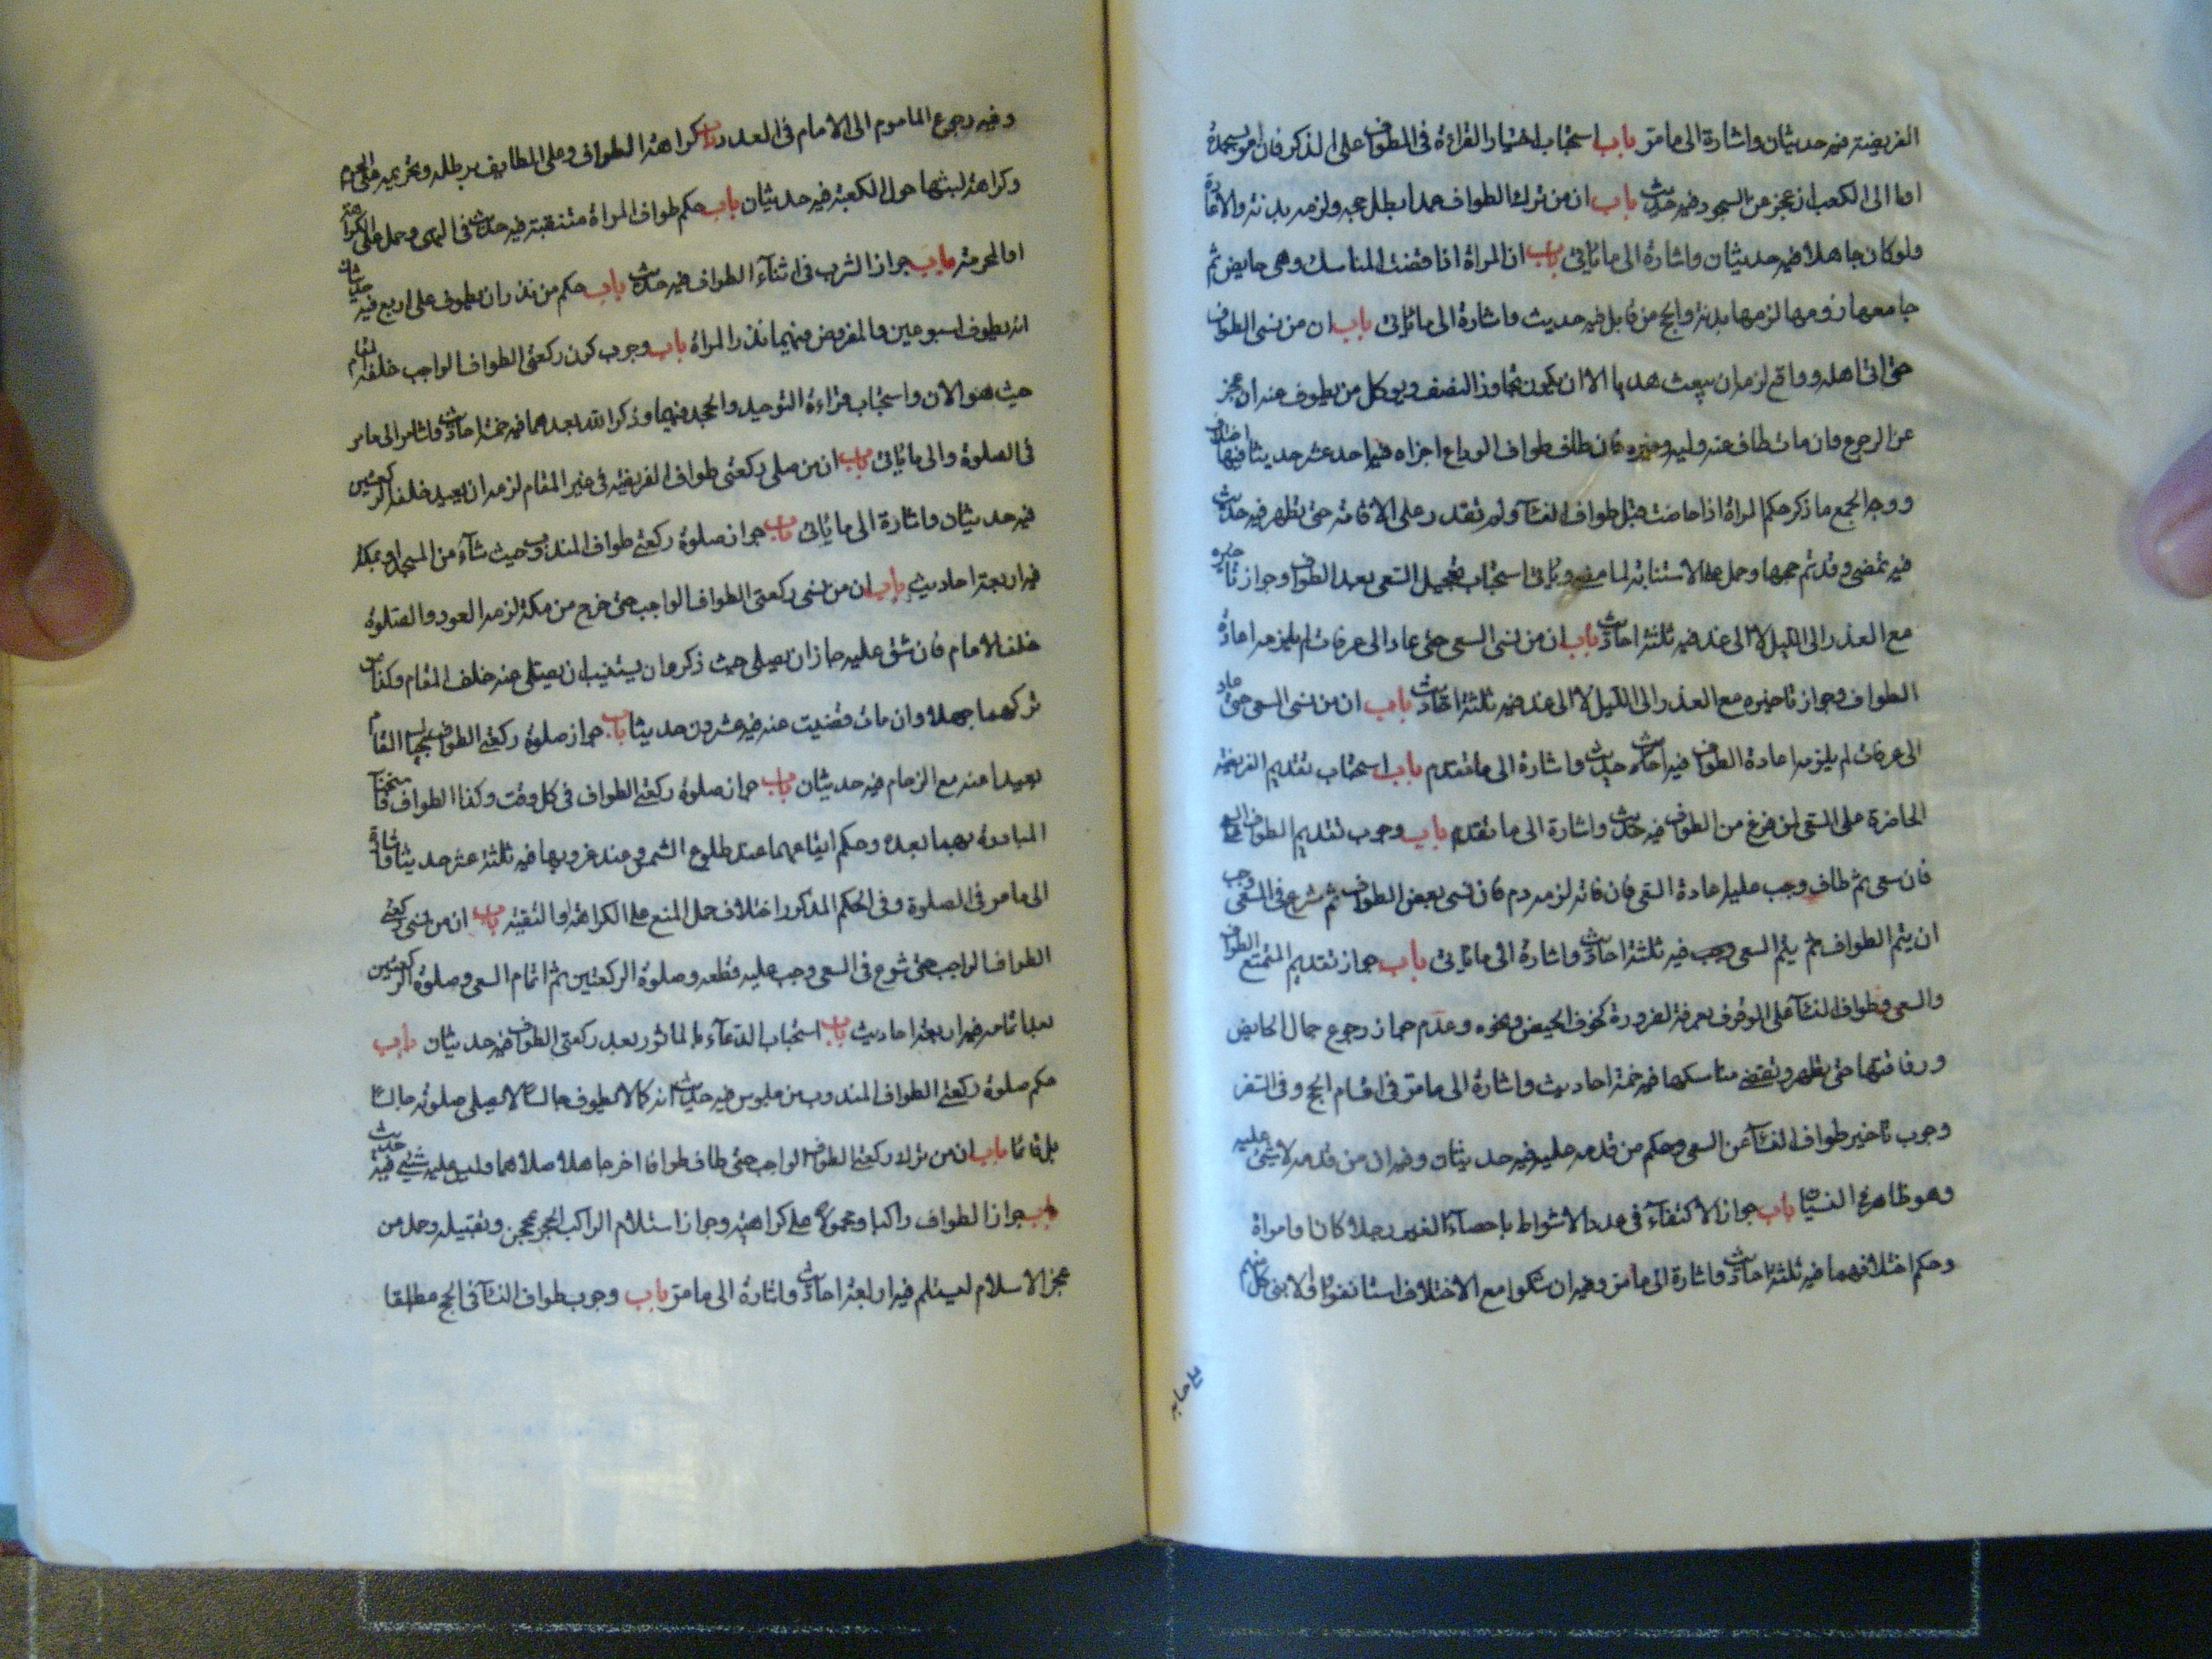 الفريضة فيه حديثان واشارة الى ما مرّ باب استحباب اختيار القراءة في الطواف على الذكر فان مر بسجدة
اوما الى الكعبة ان عجز عن السجود فيه حديث باب ان من ترك الطواف عمدا بطل حجه ولزمه بدنة والاعادة
ولو كان جاهلا فيه حديثان واشارة الى ما ياتي باب ان المراة اذا قضت المناسك وهي حايض ثم
جامعها زوجها لزمها بدنة والحج من قابل فيه حديث واشارة الى ما ياتي باب ان من نسي الطواف
حتى اتى اهله وواقع لزمه ان يبعث هديا الا ان يكون تجاوز النصف ويوكل من يطوف عنه ان عجز
عن الرجوع فان مات طاف عنه وليه وغيره فان طاف طواف الوداع اجزاه فيه احد عشر حديثا فيها اختلاف
ووجه الجمع ما ذكر حكم المراة اذا حاضت قبل طواف النسآء ولم تقدر على الاقامة حتى تطهر فيه حديث
فيه تمضي وقد تم حجها وحمل على الاستنابة لما مضى وياتي استحباب تعجيل السعي بعد الطواف وجواز تاخيره
مع العذر الى الليل لا الى غد فيه ثلثة احاديث باب ان من نسي السعي حتى عاد الى عرفات لم يلزمه اعادة
الطواف وجواز تاخيره مع العذر الى الليل لا الى غد فيه ثلثة احاديث باب ان من نسي السعي حتى عاد
الى عرفات لم يلزمه اعادة الطواف فيه حديث واشارة الى ما تقدم باب استحباب تقديم الفريضة
الحاضرة على السعي لمن فرغ من الطواف فيه حديث واشارة الى ما تقدم باب وجوب تقديم الطواف على السعي
فان سعى ثم طاف وجب عليه اعادة السعي فان فاته لزمه دم فان نسي بعض الطواف ثم شرع في السعي وجب
ان يتم الطواف ثم يتم السعي فيه ثلثة احاديث واشارة الى ما ياتي باب جواز تقديم المتمتع الطواف
والسعي وطواف النسآء على الوقوف بعرفة لضرورة كخوف الحيض ونحوه وعدم جواز رجوع جمال الحايض
ورفاقتها حتى تطهر وتقضي مناسكها فيه خمسة احاديث واشارة الى ما مرّ في اقسام الحج وفي السفر
وجوب تاخير طواف النسآء عن السعي وحكم من قدمه عليه فيه حديثان وفيه ان من قدمه لا شيئ عليه
وهو ظاهر في النسيان باب جواز الاكتفآء في عدد الاشواط باحصآء الغير رجلا كان او امراة
وحكم اختلافهما فيه ثلثة احاديث واشارة الى ما مرّ وفيه ان شكوا مع الاختلاف استانفوا والا بنى كل منهم
على ما به
وفيه رجوع الماموم الى الامام في العدد باب كراهة الطواف وعلى الطايف برطلة وتحريمه على المحرم
وكراهة لبسها حول الكعبة فيه حديثان باب حكم طواف المراة متنقبة فيه حديث في النهي وحمل على الكراهة
او المحرمة باب جواز الشرب في اثنآء الطواف فيه حديث باب حكم من نذر ان يطوف على اربع فيه حديثان
انه يطوف اسبوعين والمفروض فيهما نذر المراة باب وجوب كون ركعتي الطواف الواجب خلف المقام
حيث هو الان واستحباب قراءة التوحيد والجحد فيهما وذكر الله بعدهما فيه خمسة احاديث واشارة الى ما مر
في الصلوة والى ما ياتي باب ان من صلى ركعتي طواف الفريضة في غير المقام لزمه ان يعيد خلفه الركعتين
فيه حديثان واشارة الى ما ياتي باب جواز صلوة ركعتي طواف المندوب حيث شآء من المسجد او بمكة
فيه اربعة احاديث باب ان من نسي ركعتي الطواف الواجب حتى خرج من مكة لزمه العود والصلوة
خلف الامام فان شق عليه جاز ان يصلي حيث ذكر وان يستنيب ان يصلى عنه خلف المقام وكذا من
تركهما جهلا وان مات قضيت عنه فيه عشرون حديثا باب جواز صلوة ركعتي الطواف بجنب المقام
بعيدا عنه مع الزحام فيه حديثان باب جواز صلوة ركعتي الطواف في كل وقت وكذا الطواف واستحباب
المبادرة بهما بعده وحكم ايقاعهما عند طلوع الشمس وعند غروبها فيه ثلثة عشر حديثا واشارة
الى ما مر في الصلوة وفي الحكم المذكور اختلاف حمل المنع على الكراهة والتقية باب ان من نسي ركعتي
الطواف الواجب حتى شرع في السعي وجب عليه قطعه وصلوة الركعتين ثم اتمام السعي وصلوة الركعتين
بعد اتمامه فيه اربعة احاديث باب استحباب الدعآء بالماثور بعد ركعتي الطواف فيه حديثان باب
حكم صلوة ركعتي الطواف المندوب من جلوس فيه حديث انه كما لا يطوف جالسا لا يصلي صلوته جالسا
بل قائما باب ان من ترك ركعتي الطواف الواجب حتى طاف طوافا اخر جاهلا صلاهما وليس عليه شيئ فيه حديث
باب جواز الطواف راكبا ومحمولا على كراهية وجواز استلام الراكب الحجر بمحجن وتقبيله وحمل من
عجز الاستلام ليستلم فيه اربعة احاديث واشارة الى ما مرّ باب وجوب طواف النسآء في الحج مطلقا